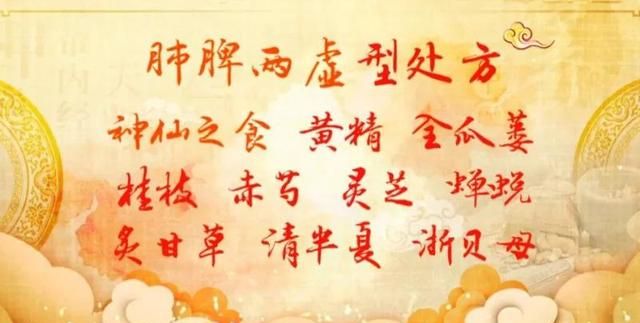 肺脾两虚型处方
神仙之食 黄精 全瓜蒌
桂枝 赤芍 灵芝 蝉蜕
炙甘草 清半夏 浙贝母